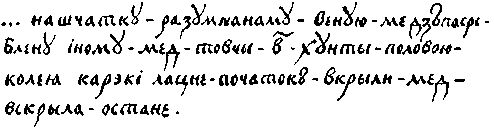 ... нашчатку - разумнанаму - Веную - медзъпасре-
блену іному - мед - товчы - в̃ - хунты - половою -
колена карэкі лацне - початокъ - вкрыли - мед -
вскрыла - остане.